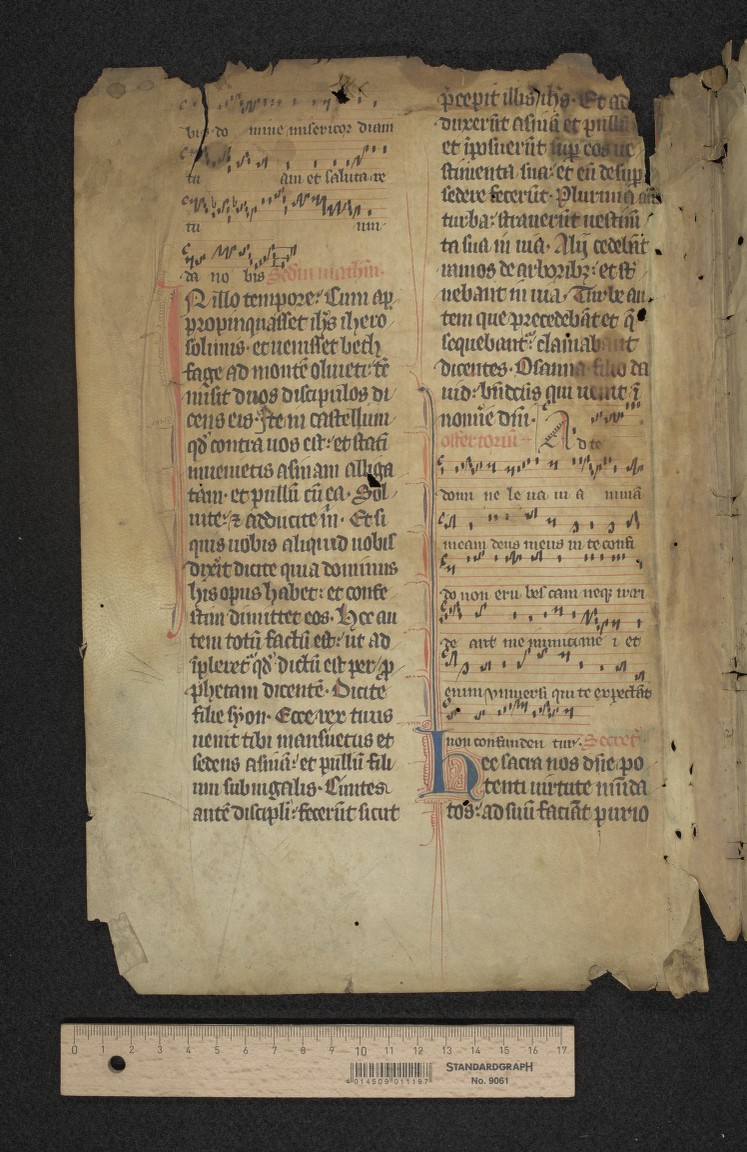 bis do mine misericor diam
tu am et saluta re
tu um
da no bis Scdm mathm.
IN illo tempore. Cum ap
propinquasset ihs ihero
solimis. et uenisset beth
fage ad montē oliueti. tē
misit duos discipulos di
cens eis. Ite in castellum
qd contra uos est. et stati
inuenietis asinam alliga
tam. et pullū cū ea. Sol
uite. ⁊ adducite m. Et si
quis uobis aliquid uobis
dixit dicite quia dominus
his opus habet. et confe
stim dimittet eos. Hec au
tem totū factū est. ut ad
īpleret qd dictū est per p
phetam dicentē. Dicite
filie syon. Ecce rex tuus
uenit tibi mansuetus et
sedens asinā. et pullū fili
um subiugalis. Euntes
autē discipli. fecerūt sicut
pcepit illis ihs. Et ad
duxerūt asinā et pullū
et īposuerūt sup eos ue
stimenta sua. et eū desup
sedere fecerūt. Plurima
turba. strauerūt uestim
ta sua in uia. Alij cedebāt
ramos de arboribz. et st
nebant in uia. Turbe au
tem que precedebāt et q
sequebant. clamabant
dicentes. Osanna filio da
uid. bndctus qui uenit ī
nomīe dnī.
offertoriū Ad te
domi ne le ua ui a nimā
meam deus meus in te confi
do non eru bes cam neqz irri
de ant me inimici me i et
enim vniuersi qui te expectāt
non confunden tur. Secret
Hec sacra nos dnē. po
tenti uirtute mūda
tos. ad suū faciāt purio
0 1 2 3 4 5 6 7 8 9 10 11 12 13 14 15 16 17
4 014509 011197
STANDARDGRAPH
No. 9061